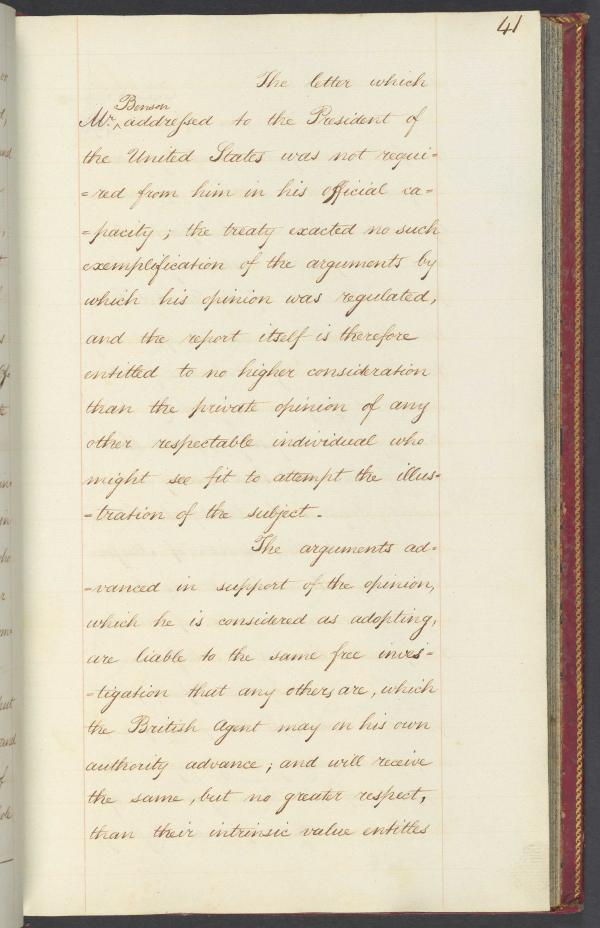 41
The letter which
Mr. ^Benson addressed to the President of
the United States was not requi=
=red from him in his official ca=
=pacity; the treaty exacted no such
exemplification of the arguments by
which his opinion was regulated,
and the report itself is therefore
entitled to no higher consideration
than the private opinion of any
other respectable individual who
might see fit to attempt the illus=
=tration of the subject.
The arguments ad=
=vanced in support of the opinion,
which he is considered as adopting,
are liable to the same free inves=
=tigation that any others are, which
the British Agent may on his own
authority advance; and will receive
the same, but no greater respect,
than their intrinsic value entitles